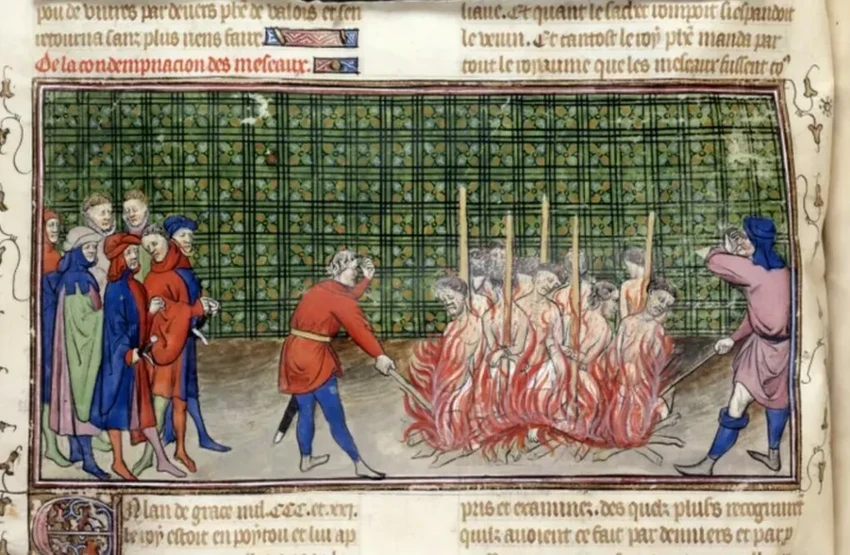 pou de viures par deuers phe de valois et sen
retourna sanz plus riens faire
De la condempnacion des meseaux.
liaue. Et quant le sachet rompoit si espandoit
le venin. Et tantost le roy phe manda par
tout le royaume que les meseaux fussent
Lan de grace mil. CCC. et xxj.
le roy estoit en poyton et lui ap
pris et examinez. des quelz plus recognurent
quilz auoient ce fait par deniers et par